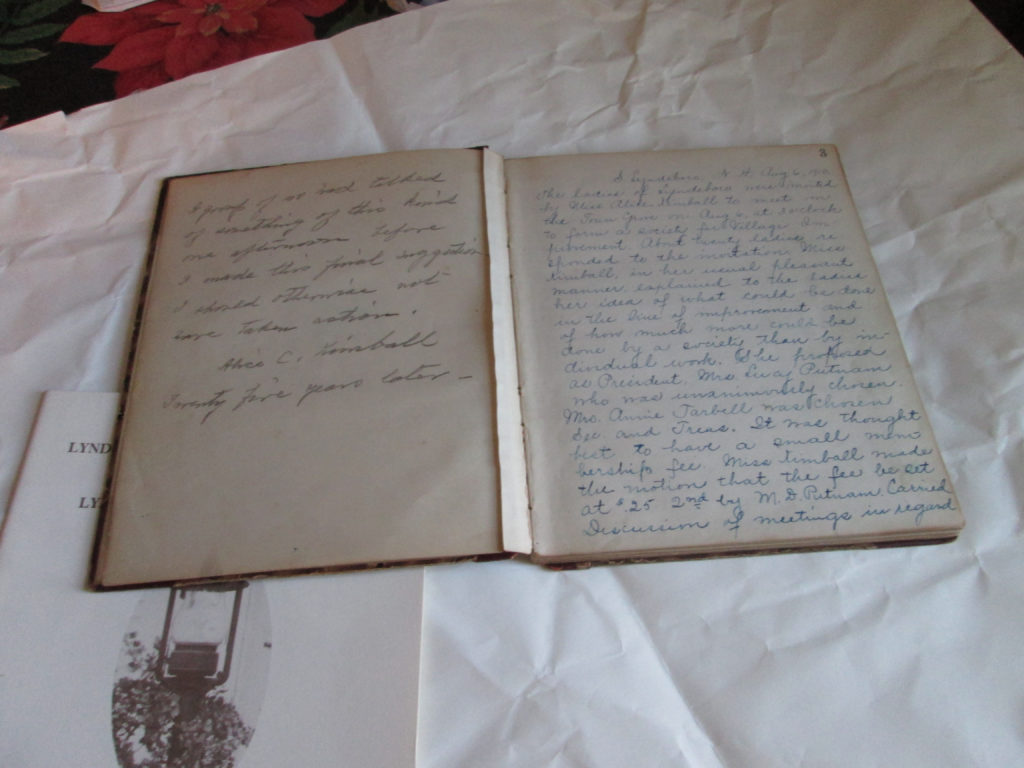 proof of
something of this kind
one afternoon before
I made this final suggestion
I should otherwise not
have taken action.
Alice C. Kimball
Twenty five years later —
LYND
LY
8
S. Lyndeboro, N. H. Aug. 6,
The ladies of Lyndeboro were invited
by Miss Alice Kimball to meet in
the Town Grove on Aug 6, at o'clock
to form a society for Village Im-
provement. About twenty ladies re-
sponded to the invitation. Miss
Kimball, in her usual pleasant
manner explained to the ladies
her idea of what could be done
in the line of improvement and
of how much more could be
done by a society than by in-
dividual work. She proposed
as President, Mrs. Lucy Putnam
who was unanimously chosen.
Mrs. Annie Tarbell was chosen
Sec. and Treas. It was thought
best to have a small mem-
bership fee. Miss Kimball made
the motion that the fee be set
at $ 25 2nd by M. D. Putnam. Carried
Discussion of meetings in regard